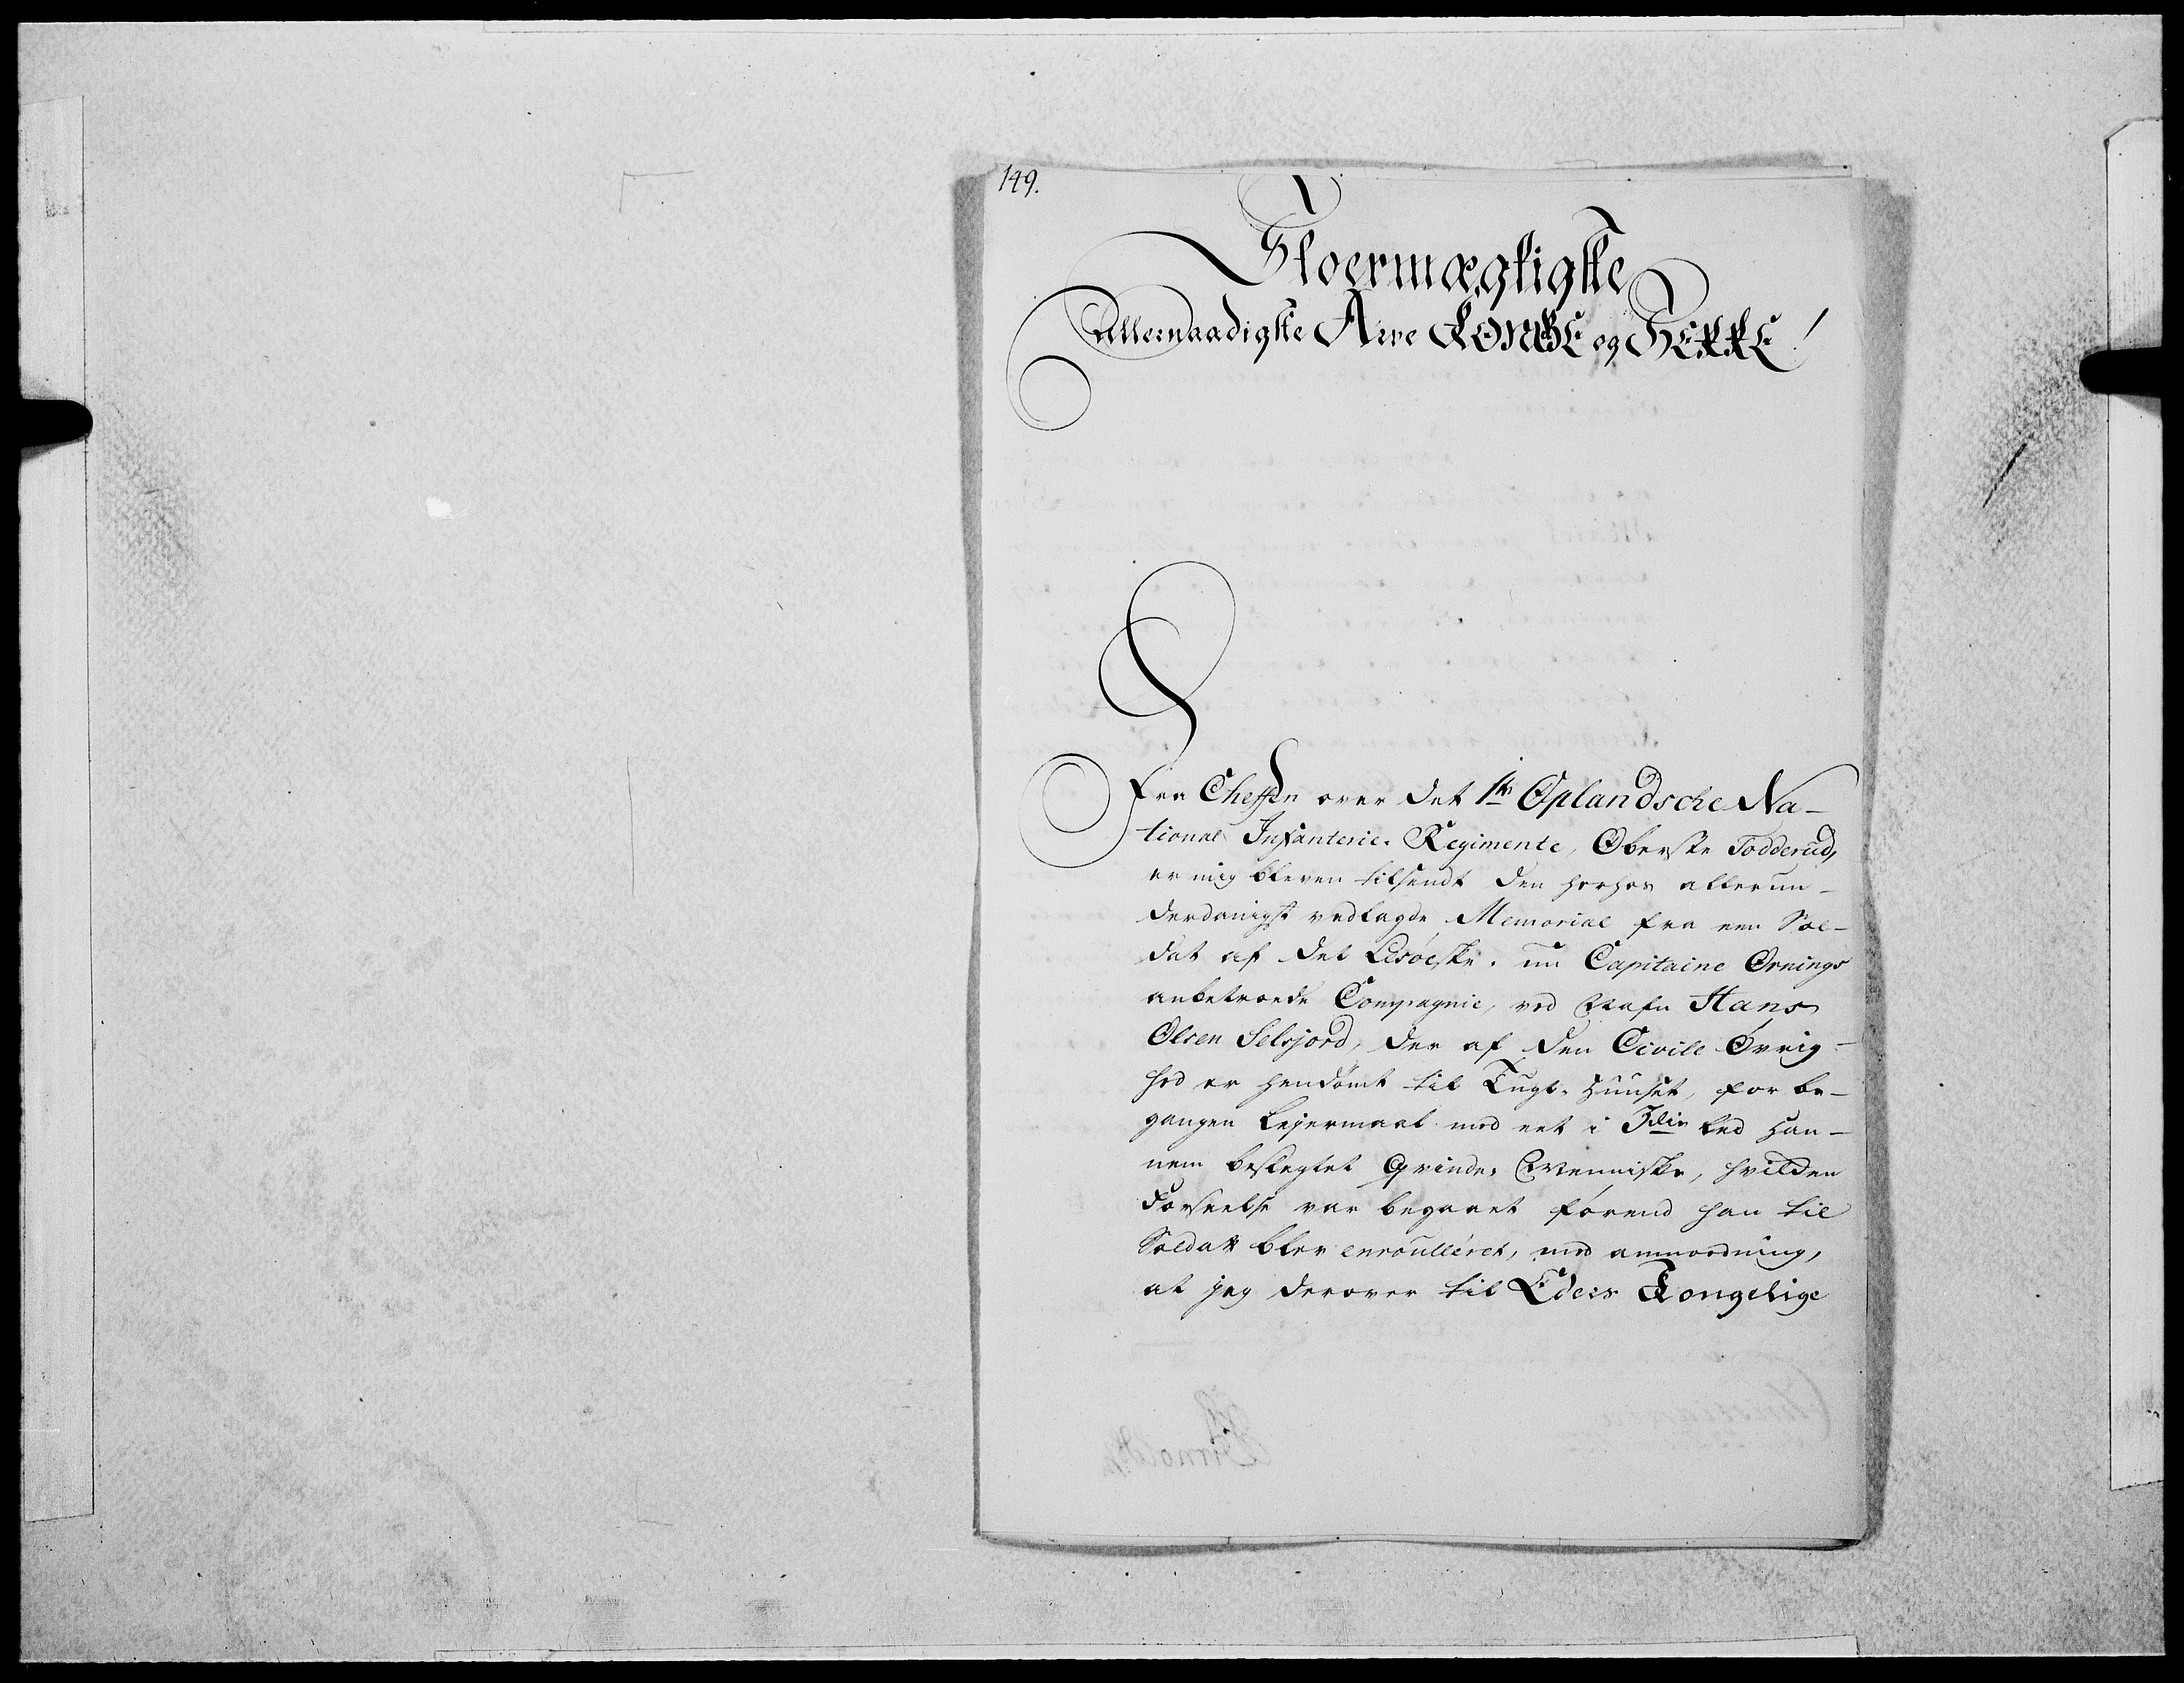 149.
Stoermægtigste
Allernaadigste Arve KONGE og HERRE!
Fra Cheffen over det 1te Oplandsche Na-
tional Infanterie-Regimente, Oberste Todderud,
er mig bleven tilsendt den herhos allerun-
derdanigst vedlagde Memorial fra een Sol-
dat af det Lesøeske. nu Capitaine Ornings
anbetroede Compagnie, ved Nafn Hans
Olsen Selsjord, der af den Civile Øvrig-
hed er hendømt til Tugt-Huuset, for be-
gangen Lejermaal med eet i 3die Led Han-
nem beslegtet Qvinde-Menniske, hvilden
Forseelse var begaaet førend han til
Soldat blev enroulléret, med anmodning,
at jeg derover til Eders Kongelige
Arnoldt